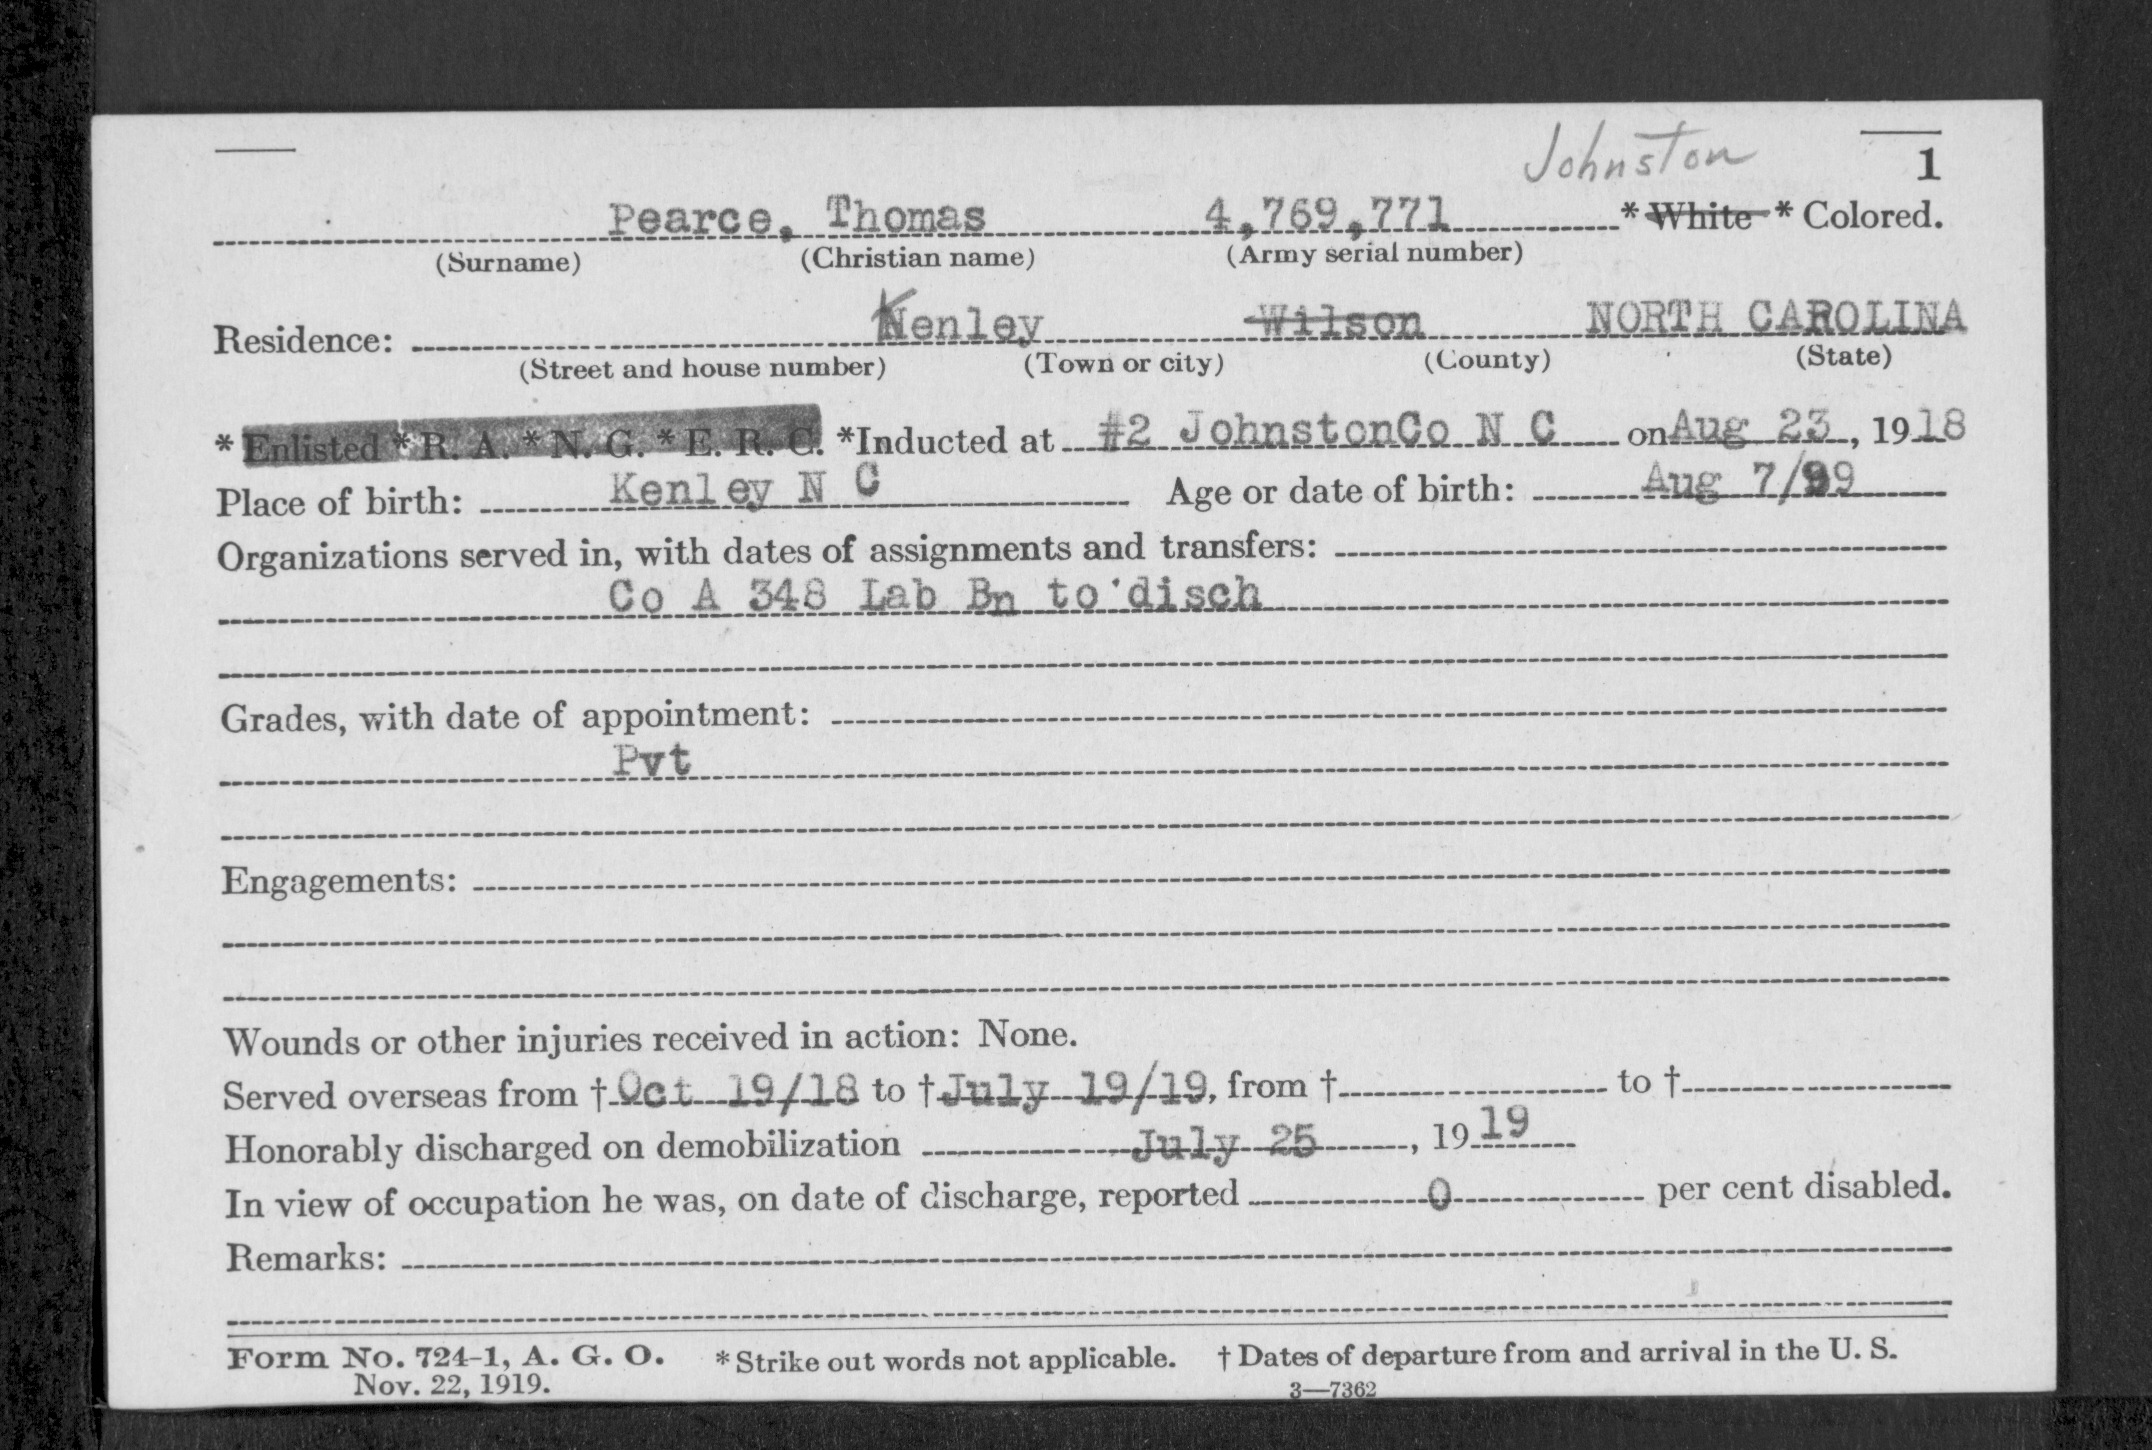 Johnston
1
Pearce, Thomas 4,769,771 * White * Colored.
(Surname) (Christian name) (Army serial number)
Residence: Kenley Wilson NORTH CAROLINA
(Street and house number) (Town or city) (County) (State)
* Enlisted * R. A. * N. G. * E. R. C. *Inducted at #2 JohnstonCo N C on Aug 23, 1918
Place of birth: Kenley N C Age or date of birth: Aug 7/99
Organizations served in, with dates of assignments and transfers:
Co A 348 Lab Bn to disch
Grades, with date of appointment:
Pvt
Engagements:
Wounds or other injuries received in action: None.
Served overseas from † Oct 19/18 to † July 19/19, from † to †
Honorably discharged on demobilization July 25, 1919
In view of occupation he was, on date of discharge, reported 0 per cent disabled.
Remarks:
Form No. 724-1, A. G. O. * Strike out words not applicable. † Dates of departure from and arrival in the U. S.
Nov. 22, 1919. 3—7362